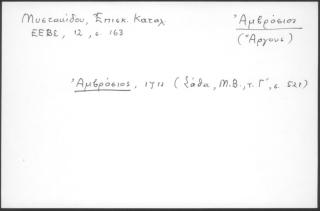 Μυστακίδου, Ἐπισκ. Καταλ.
ΕΕΒΣ, 12, σ. 163
Ἀμβρόσιος
(Ἄργους)
Ἀμβρόσιος, 1712 (Σάθα, Μ.Β., τ. Γ΄, σ. 521)